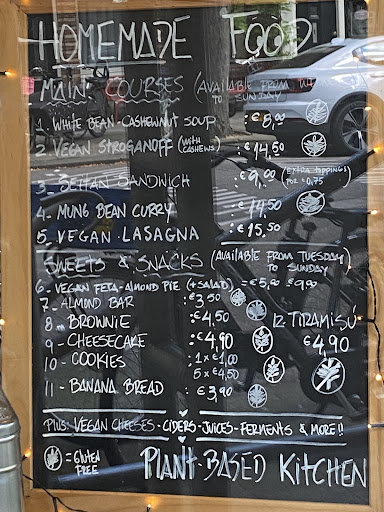 HOMEMADE FOOD
MAIN COURSES (AVAILABLE FROM
TO SUNDAY
1. WHITE BEAN-CASHEWNUT SOUP :€8,00
2. VEGAN STROGANOFF (WITH CASHEWS) :€14,50
3- SEITAN SANDWICH :€9,00 (EXTRA TOPPINGS FOR €0,75)
4- MUNG BEAN CURRY :€14,50
5. VEGAN LASAGNA :€15,50
SWEETS & SNACKS (AVAILABLE FROM TUESDAY TO SUNDAY)
6- VEGAN FETA-ALMOND PIE (+SALAD) =€5,00 €9,00
7- ALMOND BAR :€3,50
8- BROWNIE :€4,50
12. TIRAMISÚ
9- CHEESECAKE :€4,90
€4,90
10- COOKIES :1x€1,00
5x€4,50
11- BANANA BREAD :€3,90
PLUS: VEGAN CHEESES- CIDERS-JUICES-FERMENTS & MORE!!
=GLUTEN FREE
PLANT-BASED KITCHEN